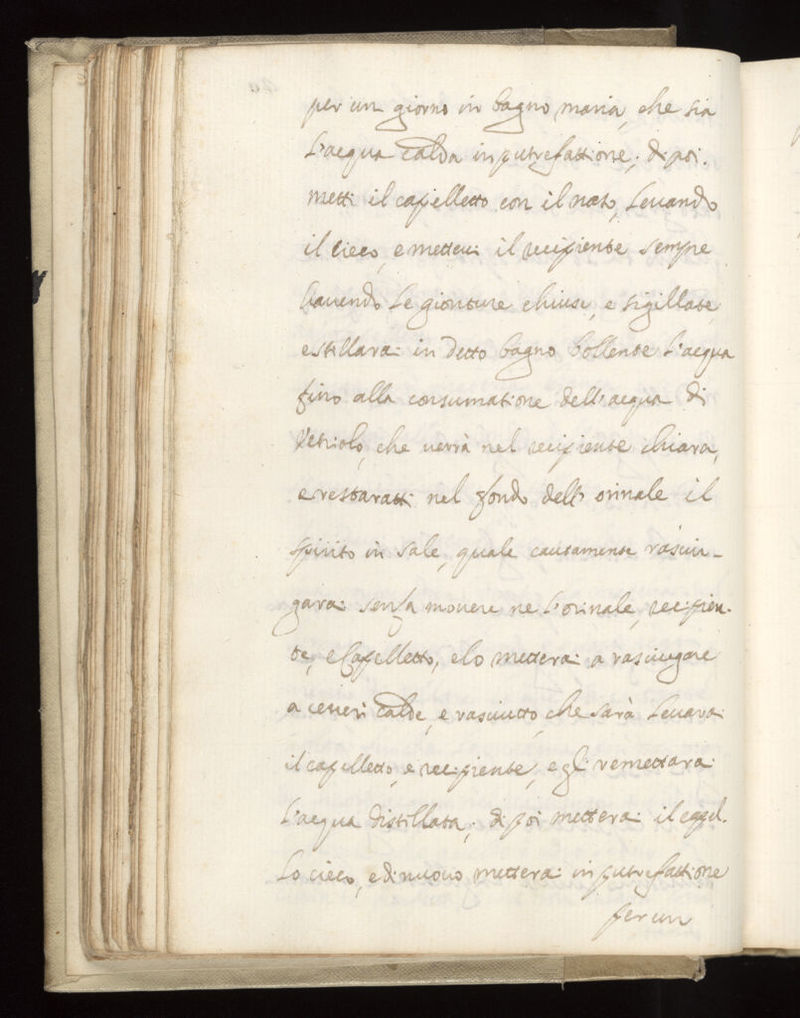 per un giorno in bagno maria, che sia
l'acqua calda in putrefattione; di poi
metti il capelletto con il naso, Levando
il cieco, e mettevi il recipiente sempre
havendo le gionture chiuse, e sigillate,
e stillarai in detto bagno bollente l'acqua
fino alla consumatione dell'acqua di
Vetriolo, che verrà nel recipiente chiara,
e restaratti nel fondo dell'orinale il
spirito in sale, quale cautamente rasciu-
garai senza movere ne l'orinale, recipien-
te, e Capelletto, e lo metterai a rasciugare
a ceneri calde, e rasciutto, che sarà Levarai
il capelletto, e recipiente, e gli remettarai
l'acqua distillata; di poi metterai il capel-
lo cieco, e di nuovo metterai in putrefattione
per un